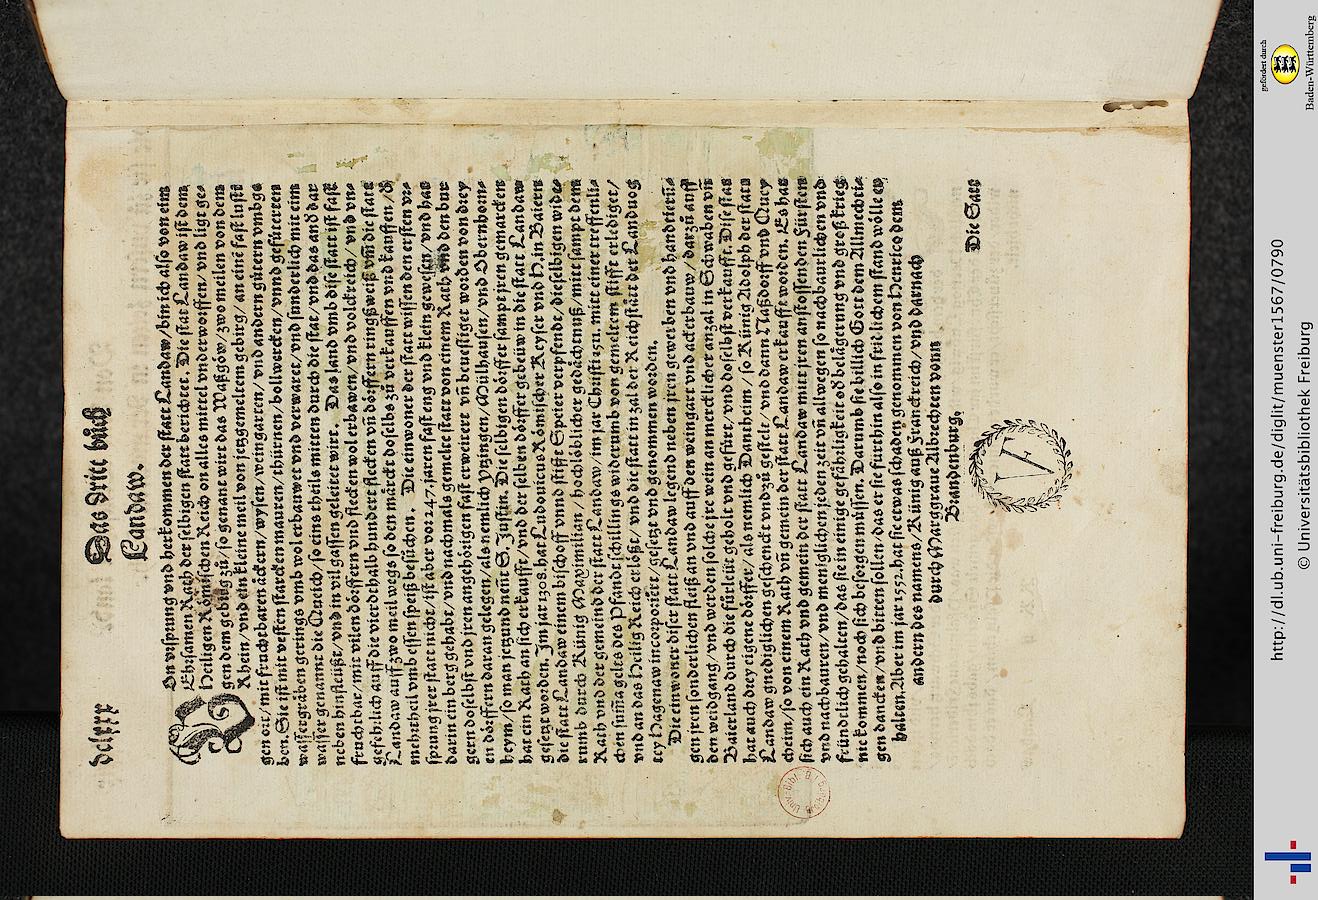 dclxxx Das dritt bůch
Landaw.
Von vrsprung vnd herkommen der statt Landaw/bin ich also von eim
Ehrsamen Rath der selbigen statt berichtet. Die stat Landaw ist dem
Heiligen Römischen Reich on alles mittel vnderworffen/vnd ligt ge-
gen dem gebirg zů/so genant wirt das Waßgöw/zwo meilen von dem
Rhein/vnd ein kleine meil von jetzgemeltem gebirg/an einē fast lusti
gen ort/mit fruchtbaren äckern/wysen/weingarten/vnd andern gütern vmbge
ben. Sie ist mit vesten starcken mauren/thürnen/bollwercken/vnnd gefütterten
wassergräben gerings vmb wol erbauwet vnd verwaret/vnd sunderlich mit eim
wasser genannt die Queich/so eins theils mitten durch die stat/vnd das and' dar
neben hinfleüßt/vnd in vil gassen geleitet wirt. Das land vmb dise statt ist fast
fruchtbar/mit vilen dörffern vnd flecken wol erbawen/vnd volckreich/vnd vn-
gefehrlich auff die vierdthalb hundert flecken vñ dörffern ringßweiß vm̄ die statt
Landaw auff zwo meil wegs so den märckt doselbs zů verkauffen vnd kauffen/d'
mehrtheil vmb essen speiß besůchen. Die einwoner der statt wissen den ersten vr-
sprung jrer statt nicht/ist aber vor 247. jaren fast eng vnd klein gewesen/vnd hat
darin ein berg gehabt/vnd nachmals gemelte statt von einem Rath vnd den bur
gern doselbst vnd jren angehörigen fast erweitert vñ beuestiget worden von drey
en dörffern daran gelegen/als nemlich Vtzingen/Mülhausen/vnd Obernborn-
heym/so man jetzund nent S. Justin. Die selbigen dörffer sampt jren gemarcken
hat ein Rath an sich erkaufft/vnd der selben dörffer gebeüw in die statt Landaw
gesetzt worden. Im jar 1308. hat Ludouicus Römischer Keyser vnd H. in Baiern
die statt Landaw einem bischoff vnnd stifft Speier verpfendt/dieselbigen wide-
rumb durch Künig Maximilian/hochlöblicher gedächtnuß/mitt sampt dem
Rath vnd der gemeind der statt Landaw/im jar Christi 1511. mitt einer treffenli-
chen sum̄a geltes des Pfandtschillings widerumb von gemeltem stifft erlediget/
vnd an das Heilig Reich erlößt/vnd die statt in zal der Reichstätt der Landuog
tey Hagenaw incorporiert/gesetzt vnd genommen worden.
Die einwoner diser statt Landaw legend neben jren gewerben vnd handtierū-
gen jren sonderlichen fleiß an vnd auff den weingart vnd ackerbauw/darzů auff
den weidgang/vnd werden solche jre wein an mercklicher anzal in Schwaben vñ
Baierland durch die fürleüt geholt vnd gefürt/vnd doselbst verkaufft. Dise stat
hat auch drey eigene dörffer/als nemlich Danheim/so Künig Adolph der statt
Landaw gnediglichen geschenckt vnd zů gestelt/vnd dann Nußdorff vnd Quey
cheim/so von einem Rath vñ gemein der statt Landaw erkaufft worden. Es hat
sich auch ein Rath vnd gemein der statt Landaw mit jren anstossenden Fürsten
vnd nachbauren/vnd meniglichen jeden zeit vñ allwegen so nachbaurlichen vnd
fründtlich gehalten/das sie in einige gefährligkeit od' belägerung vnd groß krieg
nie kommen/noch sich besorgen müssen. Darumb sie billich Gott dem Allmechti-
gen dancken/vnd bitten sollen/das er sie fürthin also in fridlichem stand wölle er-
halten. Aber im jar 1552. hat sie etwas schaden genommen von Henrico dem
andern des namens/Künig auß Franckreich/vnd darnach
durch Marggraue Albrechten vonn
Brandenburg.
V
Die Statt
gefördert durch
Baden-Württemberg
http://dl.ub.uni-freiburg.de/diglit/muenster1567/0790
© Universitätsbibliothek Freiburg